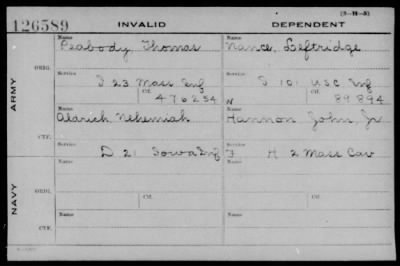 (3-H-5)
126589 INVALID DEPENDENT
Name Name
Peabody, Thomas Nance, Leftridge
ORIG.
Service Service
D 23 Mass Inf D 101 USC Inf
Ctf. Ctf.
470254 W 89894
ARMY
Name Name
Aldrich, Nehemiah Hannon John, Jr
CTF.
Service Service
D 21 Iowa Inf F H 2 Mass Cav
Name Name
ORIG. Ctf. Ctf.
NAVY
Name Name
CTF.